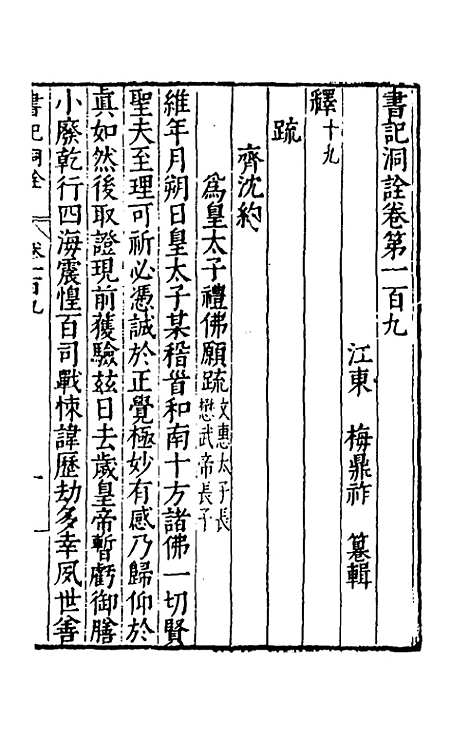 書記洞詮卷第一百九
江東 梅鼎祚 纂輯
釋十九
疏
齊沈約
爲皇太子禮佛願疏文惠太子長懋武帝長子
維年月朔日皇太子某稽首和南十方諸佛一切賢
聖夫至理可祈必憑誠於正覺極妙有感乃歸仰於
眞如然後取證現前獲驗兹日去歲皇帝暫虧御膳
小廢乾行四海震惶百司戰悚諱歷劫多幸夙世善
書記洞詮
卷一百九
一